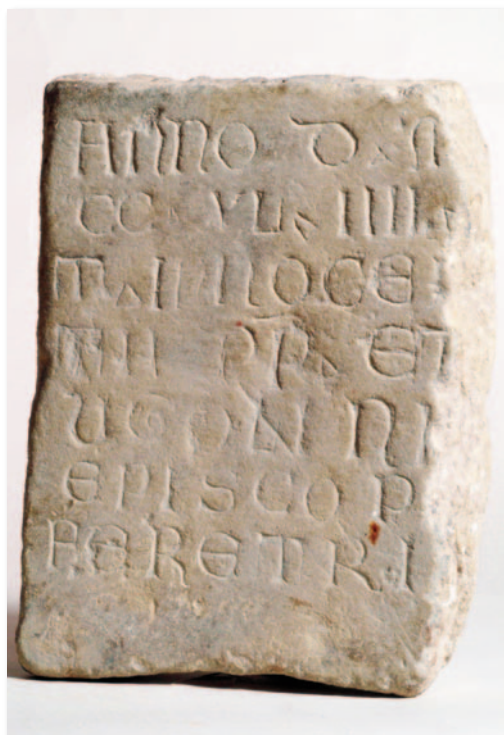 ANNO D · N
CC · VL · IIIII
T · INNOCEN
TII PP · ET
UGONNI
EPISCOP
FERETRI